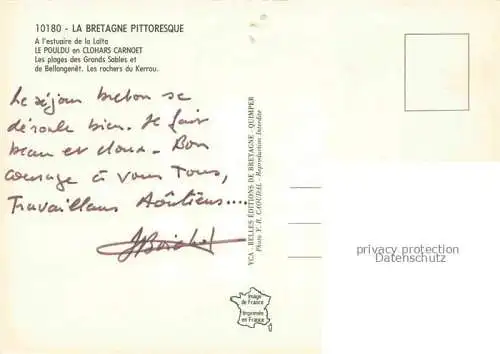 10180 - LA BRETAGNE PITTORESQUE
A l'estuaire de la Laïta
LE POULDU en CLOHARS CARNOET
Les plages des Grands Sables et
de Bellangenêt. Les rochers du Kerrou.
Le séjour breton se
déroule bien. Il fait
beau et doux. Bon
courage à vous Tous,
Travailleurs Aoûtiens....
YCA - BELLES ÉDITIONS DE BRETAGNE - QUIMPER
Photo Y. R. CAOUDAL - Reproduction Interdite
Image
de France
Imprimée
en France
privacy protection
Datenschutz